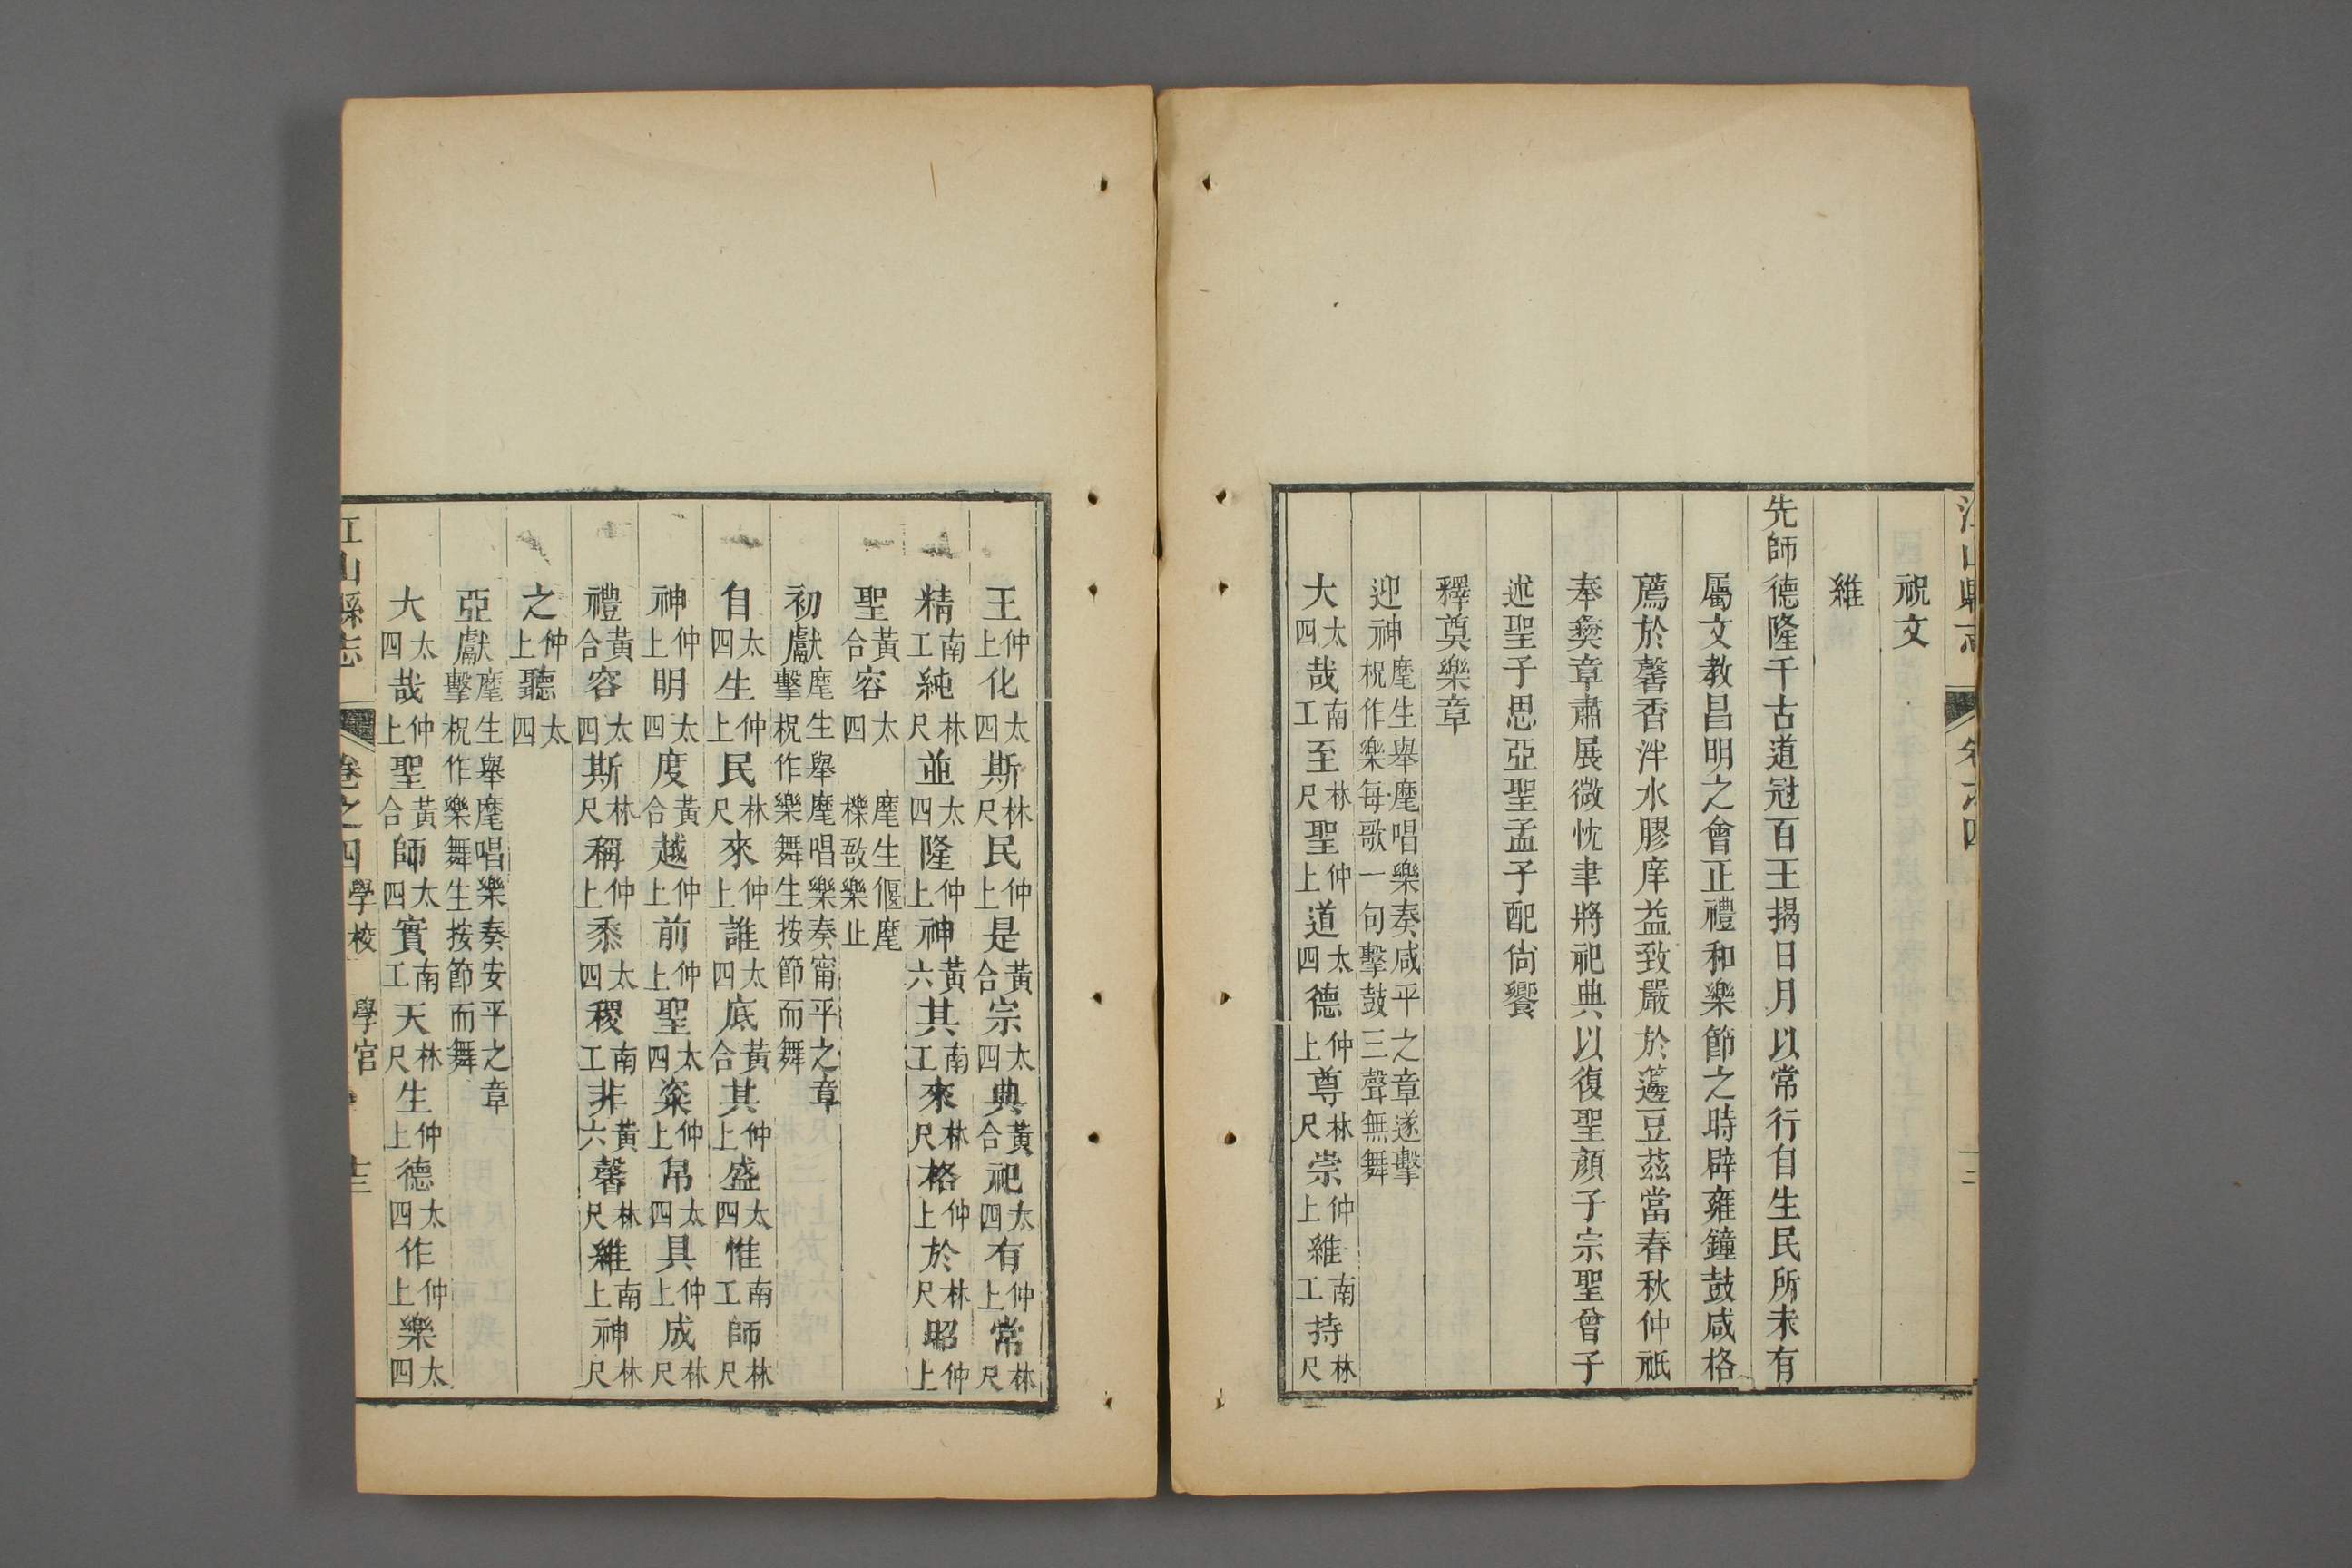 江山縣志 卷之四
祝文
維
先師德隆千古道冠百王揭日月以常行自生民所未有
屬文教昌明之會正禮和樂節之時辟雍鐘鼓咸格
薦於馨香泮水膠庠益致嚴於籩豆茲當春秋仲祇
奉彜章肅展微忱聿將祀典以復聖顏子宗聖曾子
述聖子思亞聖孟子配尙饗
釋奠樂章
迎神麾生舉麾唱樂奏咸平之章遂擊柷作樂每歌一句擊鼓三聲無舞
大太四哉南工至林尺聖仲上道太四德仲上尊林尺崇仲上維南工持林尺
王仲上化太四斯林尺民仲上是黃合宗太四典黃合祀太四有仲上常林尺
精南工純林尺並太四隆仲上神黃六其南工來林尺格仲上於林尺昭仲上
聖黃合容太四 麾生偃麾櫟敔樂止
初獻麾生舉麾唱樂奏甯平之章擊柷作樂舞生按節而舞
自太四生仲上民林尺來仲上誰太四底黃合其仲上盛太四惟南工師林尺
神仲上明太四度黃合越仲上前仲上聖太四粢仲上帛太四具仲上成林尺
禮黃合容太四斯林尺稱仲上黍太四稷南工非黃六馨林尺維南上神林尺
之仲上聽太四
亞獻麾生舉麾唱樂奏安平之章擊柷作樂舞生按節而舞
大太四哉仲上聖黃合師太四實南工天林尺生仲上德太四作仲上樂太四
江山縣志 卷之四 學校 學官 十三